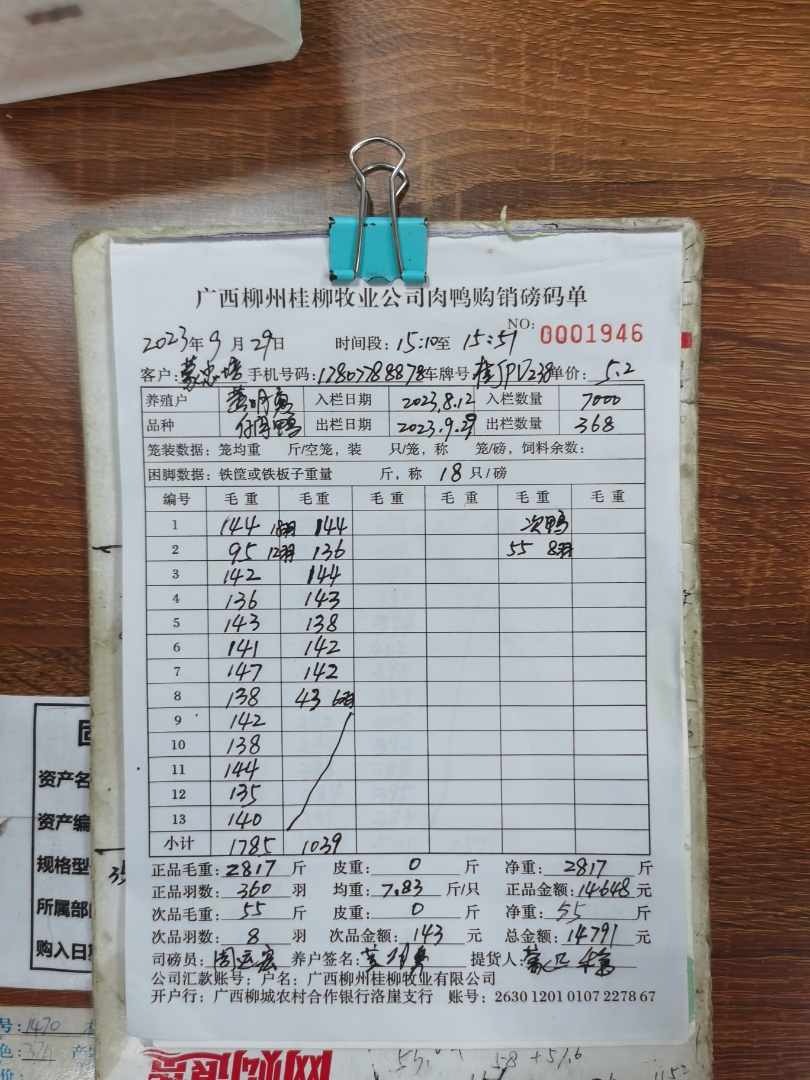 广西柳州桂柳牧业公司肉鸭购销磅码单
NO: 0001946
2023年9月29日 时间段:15:10至 15:51
客户: 手机号码:17807788878 车牌号:桂JPV238 单价: 5.2
养殖户 入栏日期 2023.8.12 入栏数量 7000
品种 出栏日期 2023.9.29 出栏数量 368
笼装数据:笼均重 斤/空笼,装 只/笼,称 笼/磅,饲料余数:
困脚数据:铁筐或铁板子重量 斤,称 18 只/磅
编号 毛重 毛重 毛重 毛重 毛重 毛重
1 144 18羽 144 次鸭
2 95 12羽 136 55 8羽
3 142 144
4 136 143
5 143 138
6 141 142
7 147 142
8 138 43 6羽
9 142
10 138
11 144
12 135
13 140
小计 1785 1039
正品毛重:2817 斤 皮重: 0 斤 净重: 2817 斤
正品羽数: 360 羽 均重:7.83 斤/只 正品金额:14648元
次品毛重: 55 斤 皮重: 0 斤 净重: 55 斤
次品羽数: 8 羽 次品金额: 143 元 总金额:14791 元
司磅员:周运宏 养户签名: 提货人:
公司汇款账号:户名:广西柳州桂柳牧业有限公司
开户行:广西柳城农村合作银行洛崖支行 账号:2630 1201 0107 2278 67
资产名
资产编
规格型
所属部
购入日期
号:1470
色:37A 产
价:
58+51.6